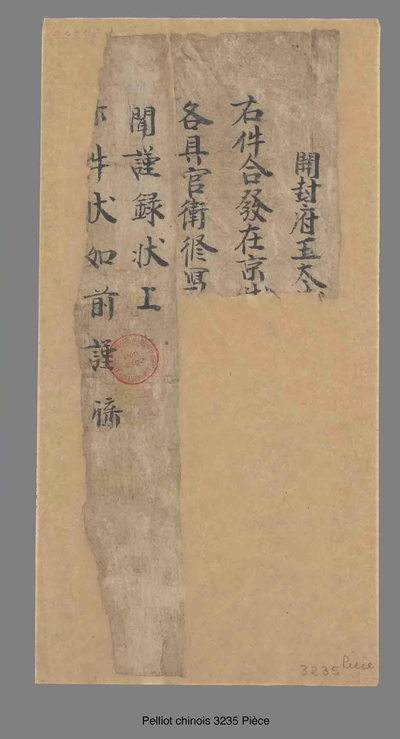 開封府王太
右件合發在京
各具官銜修寫
聞謹錄狀上
件狀如前謹
3235 Pièce
Pelliot chinois 3235 Pièce